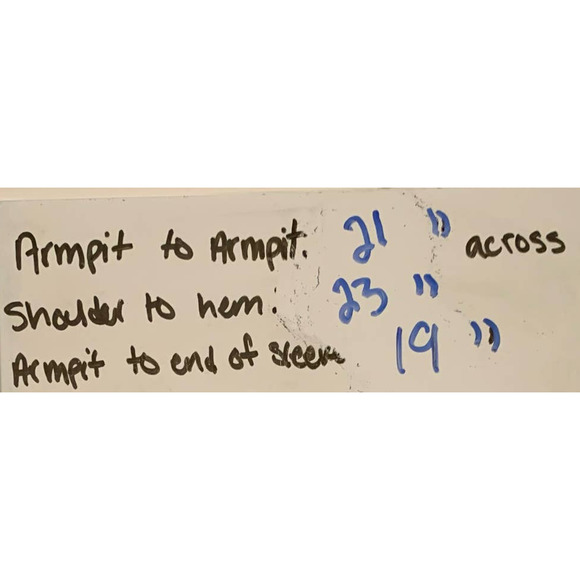 Armpit to Armpit: 21 " across
Shoulder to hem: 23 "
Armpit to end of sleeve 19 "